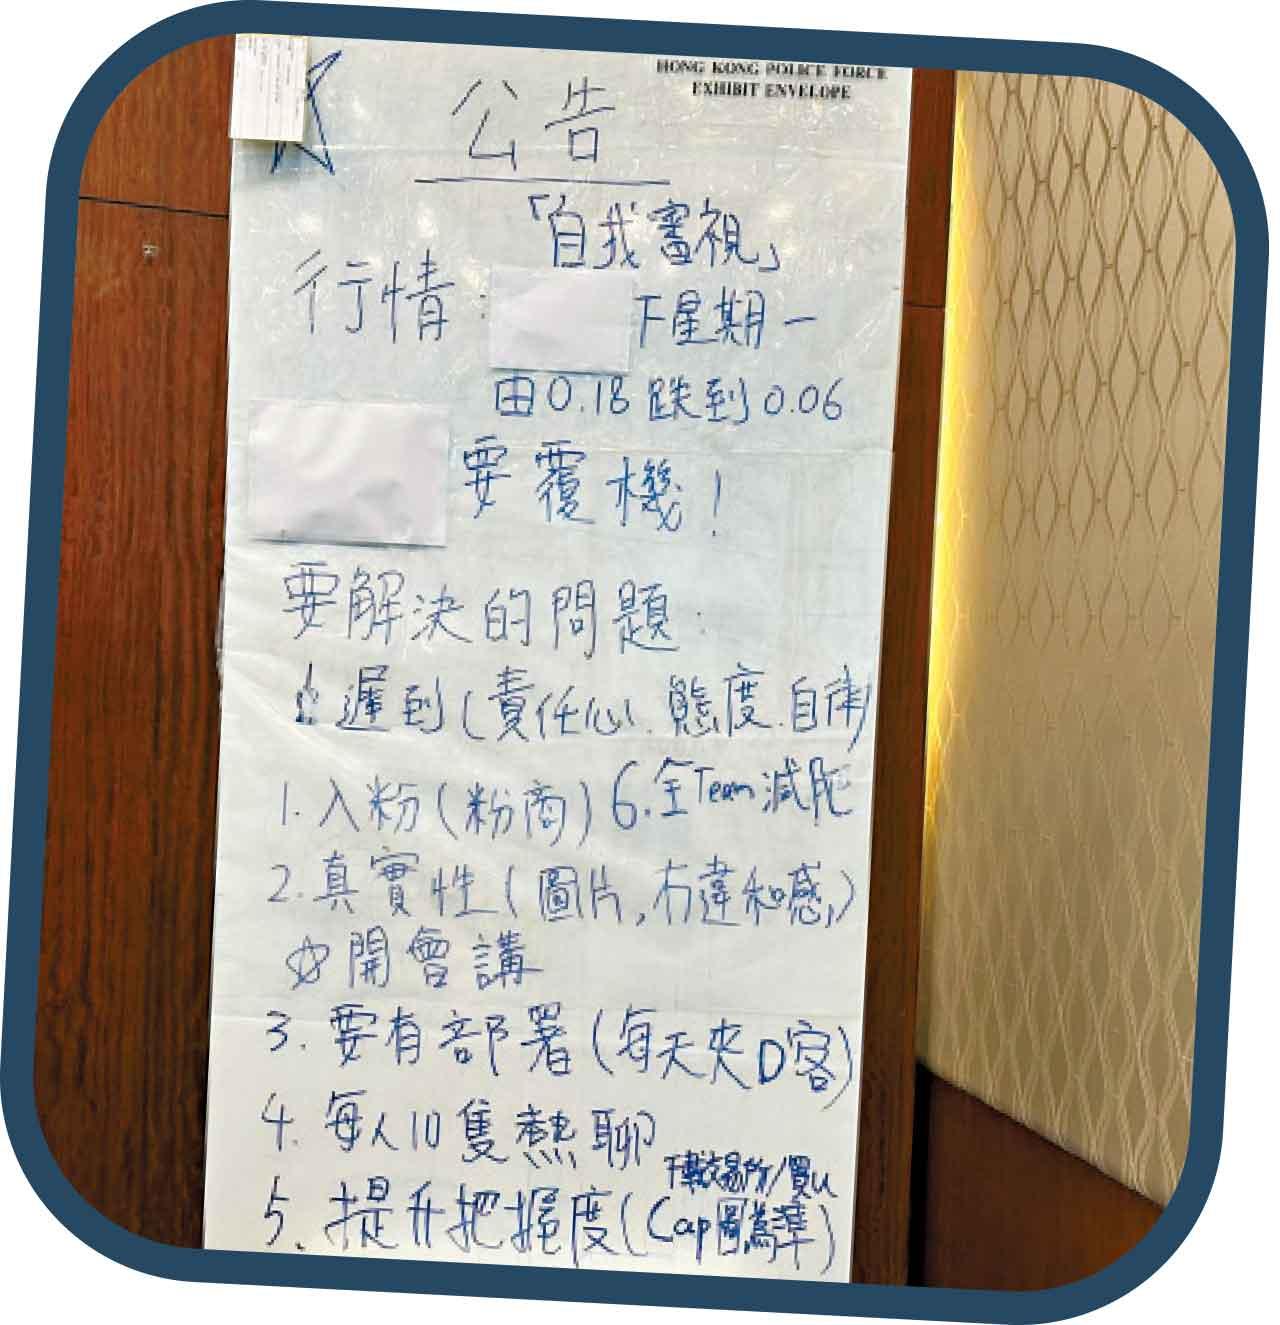 HONG KONG POLICE FORCE
EXHIBIT ENVELOPE
公告
「自我審視」
行情: 下星期一
由0.18跌到0.06
要覆機!
要解決的問題:
遲到(責任心、態度、自律)
1. 入粉(粉商) 6. 全Team減肥
2. 真實性(圖片,冇違和感,)
☆開會講
3. 要有部署(每天夾D客)
4. 每人10隻熱聊
下載交易所/買U
5. 提升把握度(Cap圖為準)